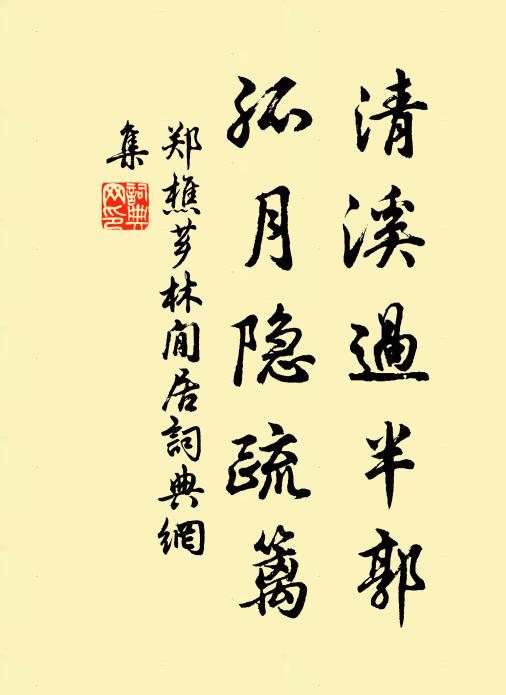 清溪過半郭
孤月隐疏篱
郑樵芗林閒居詞典網
集
詞典
网印